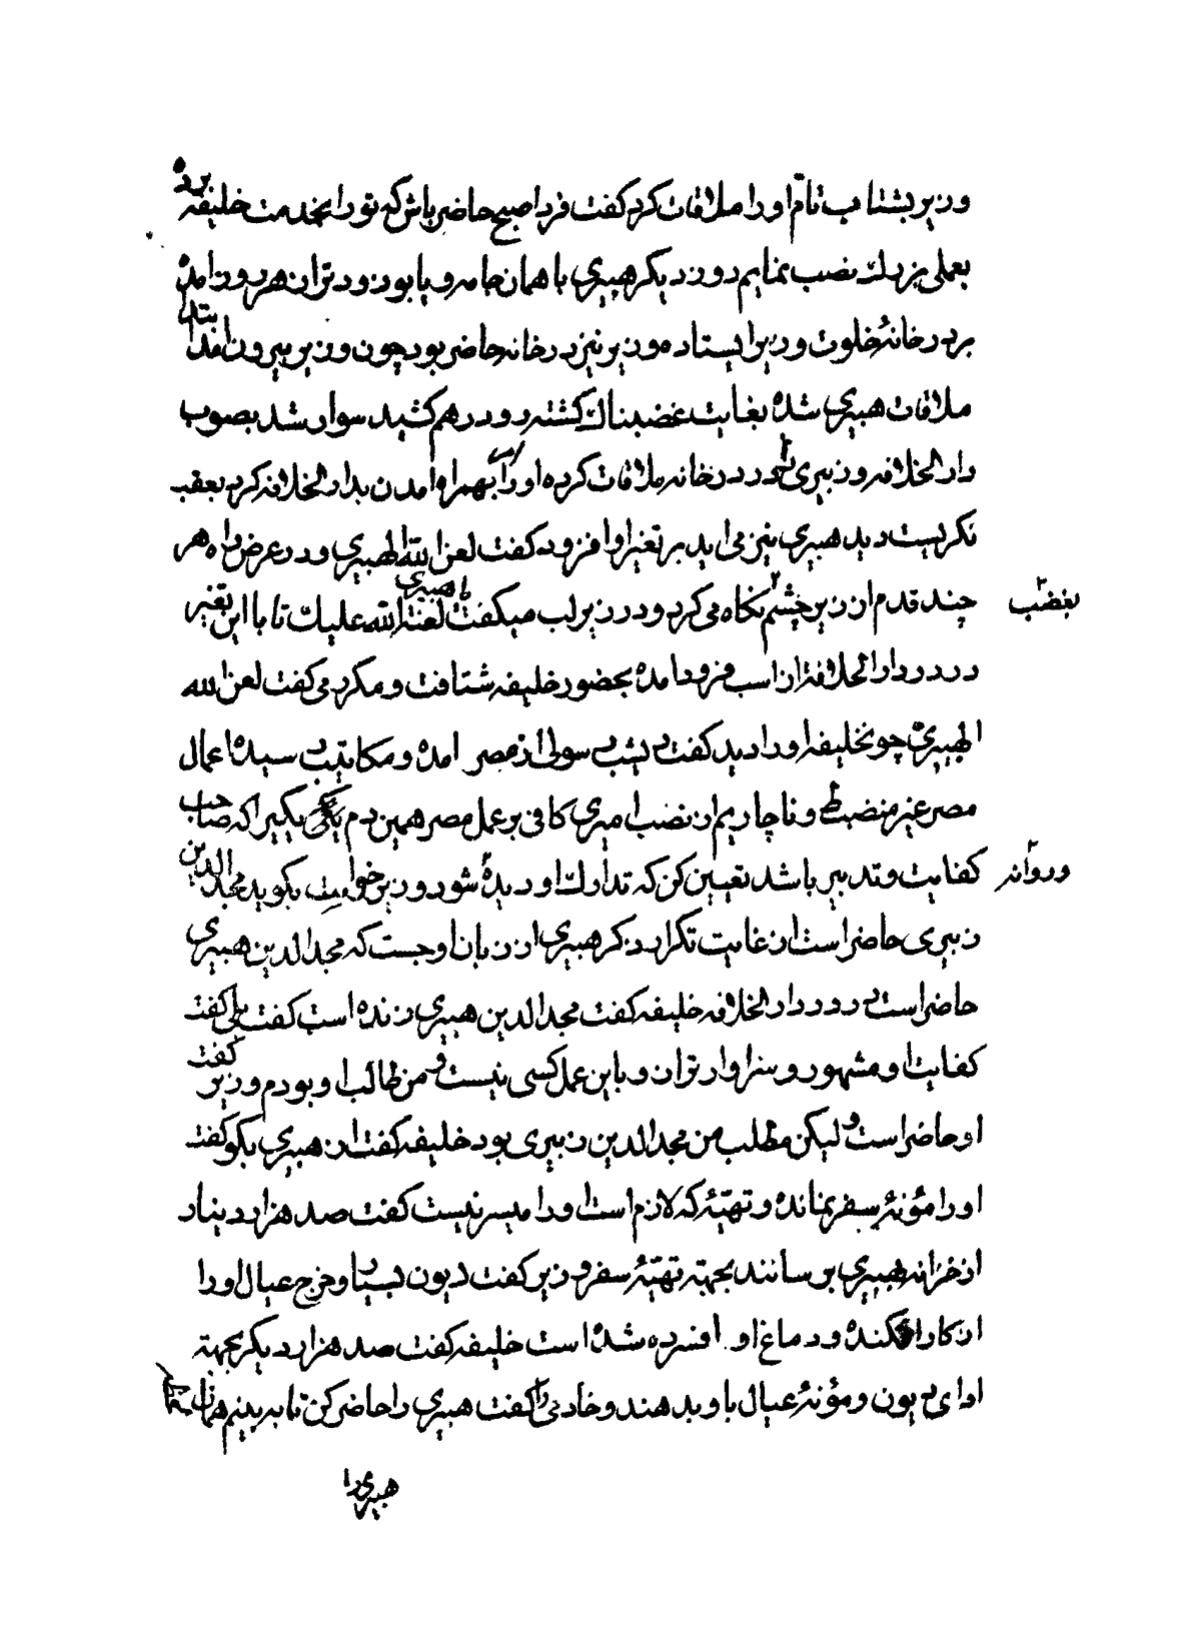 وزیر بشتاب تمام او را ملاقات کرد گفت فردا صبح حاضر باش که تو را بخدمت خلیفه برده
بعملی بزرك نصب نمایم روز دیکر هبیری با همان جامه و پابوز ودتران هر روز امده
بر در خانهٔ خلوت وزیر ایستاده وزیر نیز در خانه حاضر بود چون وزیر بیرون امد ابتدا
ملاقات هبیری شده بغایت غضبناك کشته رو درهم کشید سوار شد بصوب
دار الخلافه وزبیری که در در خانه ملاقات کرده او را بهمراه آمدن بدار الخلافه کرد بعقب
نکریست دید هبیری نیز می اید بر تغیر او افزود گفت لعن الله الهبیری و در عرض راه هر
چند قدم از زیر چشم نکاه می کرد و در زیر لب میکفت یا هبیری لعنة الله علیك تا با این تغیر
بغضب
در در دار الخلافة از اسب فرود امده بحضور خلیفه شتافت و مکرر می کفت لعن الله
الهبیری چون خلیفه او را دید کفت دیشب رسولی از مصر امده و مکاتیب رسیده اعمال
مصر غیر منضبط و ناچاریم از نصب امیری کافی بر عمل مصر همین دم یکی بکیر که صاحب
کفایت و تدبیر باشد تعیین کن که تدارك او دیده شود وزیر خواست بکوید مجد الدین
و روانه
زبیری حاضر است از غایت تکرار ذکر هبیری از زبان او جست که مجد الدین هبیری
حاضر است در در دار الخلافه خلیفه کفت مجد الدین هبیری زنده است کفت بلی کفت
کفایت او مشهور و سزاوارتر از و باین عمل کسی نیست و من طالب او بودم وزیر کفت
او حاضر است و لیکن مطلب من مجد الدین زبیری بود خلیفه کفت از هبیری بکو کفت
او را مؤنهٔ سفر نمانده و تهیّهٔ که لازم است او را میسر نیست کفت صد هزار دینار
از خزانه هبیری برسانند بجهة تهیّهٔ سفر وزیر کفت دیون بسیار و خرج عیال او را
از کار افکنده و دماغ او افسرده شده است خلیفه کفت صد هزار دیکر بجهة
ادای دیون و مؤنهٔ عیال باو بدهند و خادمی را کفت هبیری را حاضر کن تا به بینم
هبیری را